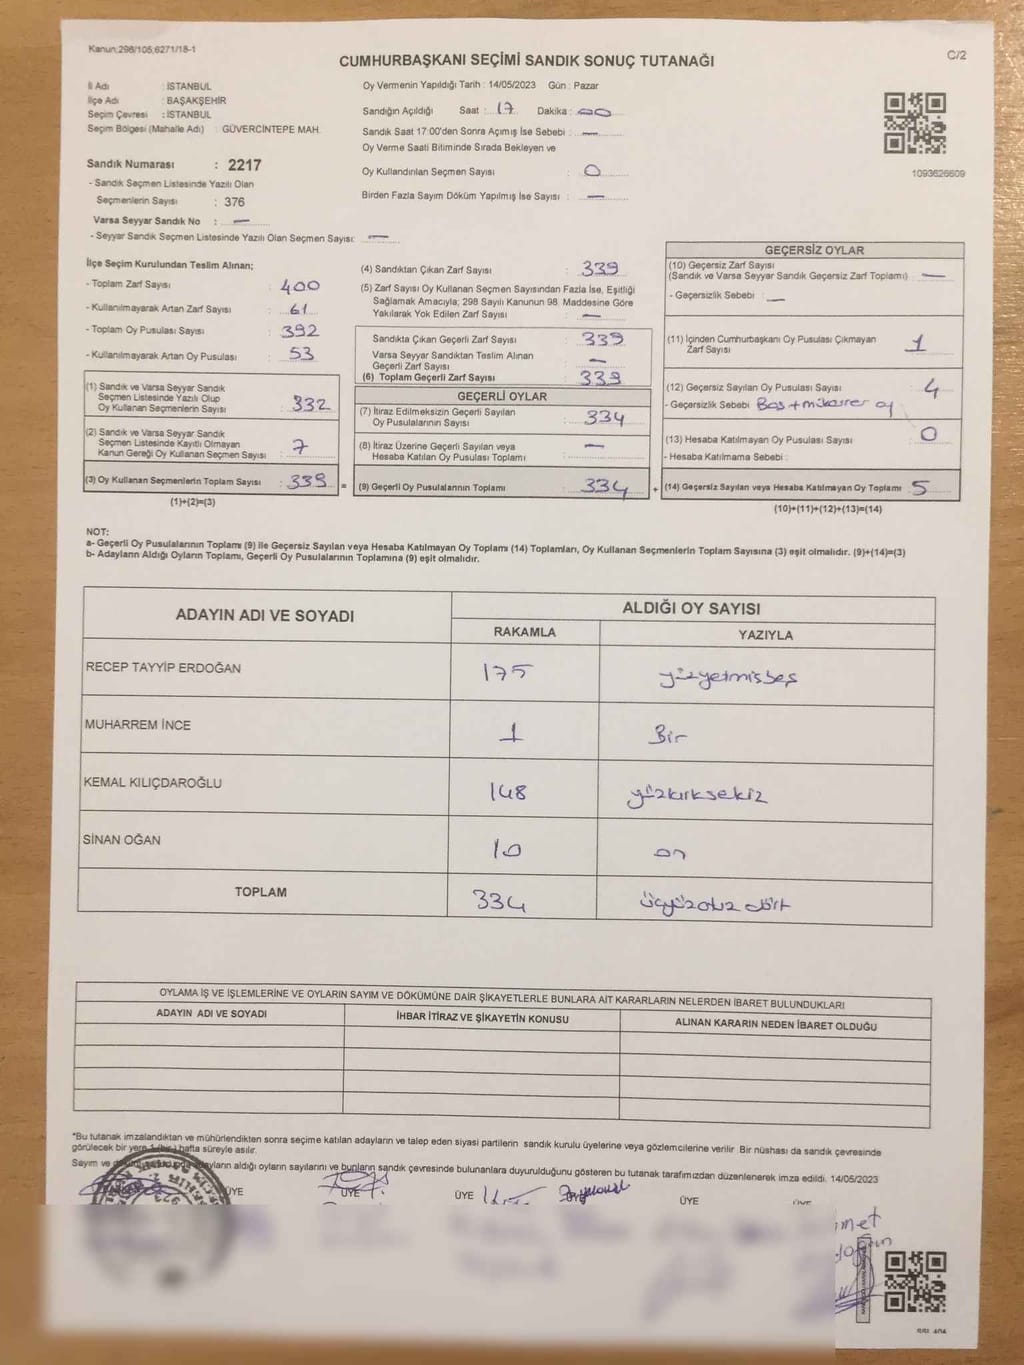 Kanun:298/105,6271/18-1
C/2
CUMHURBAŞKANI SEÇİMİ SANDIK SONUÇ TUTANAĞI
İl Adı : İSTANBUL
İlçe Adı : BAŞAKŞEHİR
Seçim Çevresi : İSTANBUL
Seçim Bölgesi (Mahalle Adı) : GÜVERCİNTEPE MAH.
Sandık Numarası : 2217
- Sandık Seçmen Listesinde Yazılı Olan
Seçmenlerin Sayısı : 376
Varsa Seyyar Sandık No : —
- Seyyar Sandık Seçmen Listesinde Yazılı Olan Seçmen Sayısı: —
Oy Vermenin Yapıldığı Tarih : 14/05/2023 Gün : Pazar
Sandığın Açıldığı Saat : 17 Dakika : 00
Sandık Saat 17:00'den Sonra Açımış İse Sebebi : —
Oy Verme Saati Bitiminde Sırada Bekleyen ve
Oy Kullandırılan Seçmen Sayısı : 0
Birden Fazla Sayım Döküm Yapılmış İse Sayısı : —
1093626609
İlçe Seçim Kurulundan Teslim Alınan;
- Toplam Zarf Sayısı : 400
- Kullanılmayarak Artan Zarf Sayısı : 61
- Toplam Oy Pusulası Sayısı : 392
- Kullanılmayarak Artan Oy Pusulası : 53
(1) Sandık ve Varsa Seyyar Sandık
Seçmen Listesinde Yazılı Olup
Oy Kullanan Seçmenlerin Sayısı : 332
(2) Sandık ve Varsa Seyyar Sandık
Seçmen Listesinde Kayıtlı Olmayan
Kanun Gereği Oy Kullanan Seçmen Sayısı : 7
(3) Oy Kullanan Seçmenlerin Toplam Sayısı : 339
(1)+(2)=(3)
(4) Sandıktan Çıkan Zarf Sayısı : 339
(5) Zarf Sayısı Oy Kullanan Seçmen Sayısından Fazla İse, Eşitliği
Sağlamak Amacıyla; 298 Sayılı Kanunun 98. Maddesine Göre
Yakılarak Yok Edilen Zarf Sayısı : —
Sandıkta Çıkan Geçerli Zarf Sayısı : 339
Varsa Seyyar Sandıktan Teslim Alınan
Geçerli Zarf Sayısı : —
(6) Toplam Geçerli Zarf Sayısı : 339
GEÇERLİ OYLAR
(7) İtiraz Edilmeksizin Geçerli Sayılan
Oy Pusulalarının Sayısı : 334
(8) İtiraz Üzerine Geçerli Sayılan veya
Hesaba Katılan Oy Pusulası Toplamı : —
= (9) Geçerli Oy Pusulalarının Toplamı : 334 +
GEÇERSİZ OYLAR
(10) Geçersiz Zarf Sayısı
(Sandık ve Varsa Seyyar Sandık Geçersiz Zarf Toplamı) : —
- Geçersizlik Sebebi : —
(11) İçinden Cumhurbaşkanı Oy Pusulası Çıkmayan
Zarf Sayısı : 1
(12) Geçersiz Sayılan Oy Pusulası Sayısı : 4
- Geçersizlik Sebebi Boş + mükerrer oy
(13) Hesaba Katılmayan Oy Pusulası Sayısı : 0
- Hesaba Katılmama Sebebi :
(14) Geçersiz Sayılan veya Hesaba Katılmayan Oy Toplamı : 5
(10)+(11)+(12)+(13)=(14)
NOT:
a- Geçerli Oy Pusulalarının Toplamı (9) ile Geçersiz Sayılan veya Hesaba Katılmayan Oy Toplamı (14) Toplamları, Oy Kullanan Seçmenlerin Toplam Sayısına (3) eşit olmalıdır. (9)+(14)=(3)
b- Adayların Aldığı Oyların Toplamı, Geçerli Oy Pusulalarının Toplamına (9) eşit olmalıdır.
ADAYIN ADI VE SOYADI
ALDIĞI OY SAYISI
RAKAMLA YAZIYLA
RECEP TAYYİP ERDOĞAN 175 yüzyetmişbeş
MUHARREM İNCE 1 Bir
KEMAL KILIÇDAROĞLU 148 yüzkırksekiz
SİNAN OĞAN 10 on
TOPLAM 334 üçyüzotuz dört
OYLAMA İŞ VE İŞLEMLERİNE VE OYLARIN SAYIM VE DÖKÜMÜNE DAİR ŞİKAYETLERLE BUNLARA AİT KARARLARIN NELERDEN İBARET BULUNDUKLARI
ADAYIN ADI VE SOYADI İHBAR İTİRAZ VE ŞİKAYETİN KONUSU ALINAN KARARIN NEDEN İBARET OLDUĞU
*Bu tutanak imzalandıktan ve mühürlendikten sonra seçime katılan adayların ve talep eden siyasi partilerin sandık kurulu üyelerine veya gözlemcilerine verilir. Bir nüshası da sandık çevresinde
görülecek bir yere 1 (bir) hafta süreyle asılır.
Sayım ve adayların aldığı oyların sayılarını ve bunların sandık çevresinde bulunanlara duyurulduğunu gösteren bu tutanak tarafımızdan düzenlenerek imza edildi. 14/05/2023
ÜYE ÜYE ÜYE ÜYE ÜYE